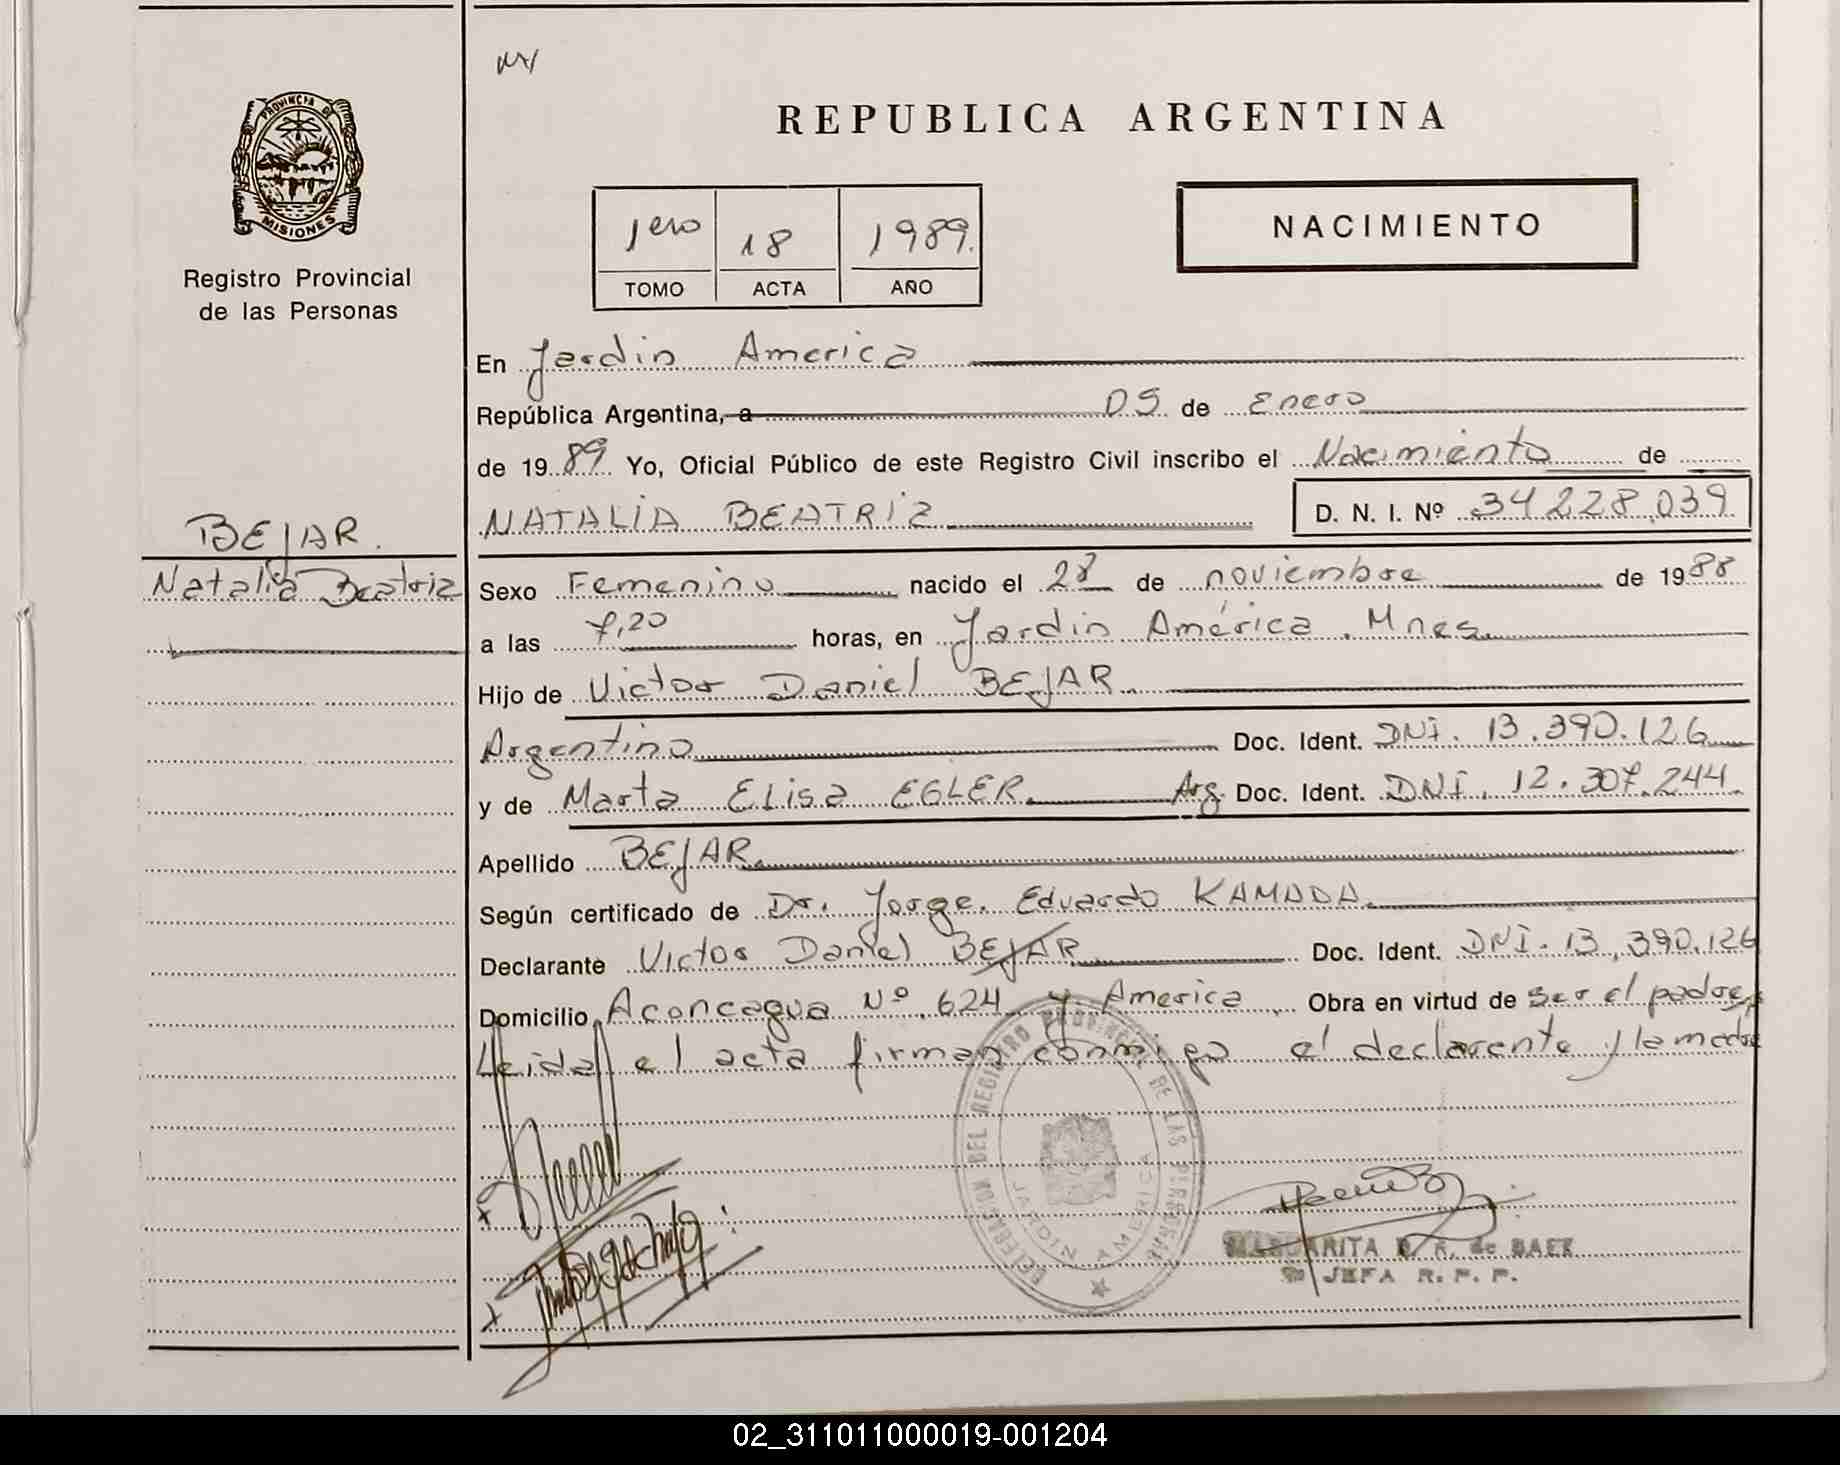 PROVINCIA DE
MISIONES
Registro Provincial
de las Personas
REPUBLICA ARGENTINA
1ero 18 1989.
TOMO ACTA AÑO
NACIMIENTO
En Jardin America
República Argentina, a 05 de Enero
de 1989 Yo, Oficial Público de este Registro Civil inscribo el Nacimiento de
NATALIA BEATRIZ D. N. I. Nº 34228,039
BEJAR.
Natalia Beatriz
Sexo Femenino nacido el 28 de noviembre de 1988
a las 7,20 horas, en Jardin América. Mnes.
Hijo de Victor Daniel BEJAR.
Argentino Doc. Ident. DNI. 13.390.126
y de Marta Elisa EGLER. Arg. Doc. Ident. DNI. 12.307.244.
Apellido BEJAR.
Según certificado de Dr. Jorge. Eduardo KAMADA.
Declarante Victor Daniel BEJAR Doc. Ident. DNI. 13,390.126
Domicilio Aconcagua Nº 624 y America. Obra en virtud de ser el padre,
Leida el acta firman conmigo el declarante y la madre
DEL REGISTRO PROVINCIAL DE LAS PERSONAS
JARDIN AMERICA
MARGARITA de BAEZ
JEFA R. P. P.
02_311011000019-001204